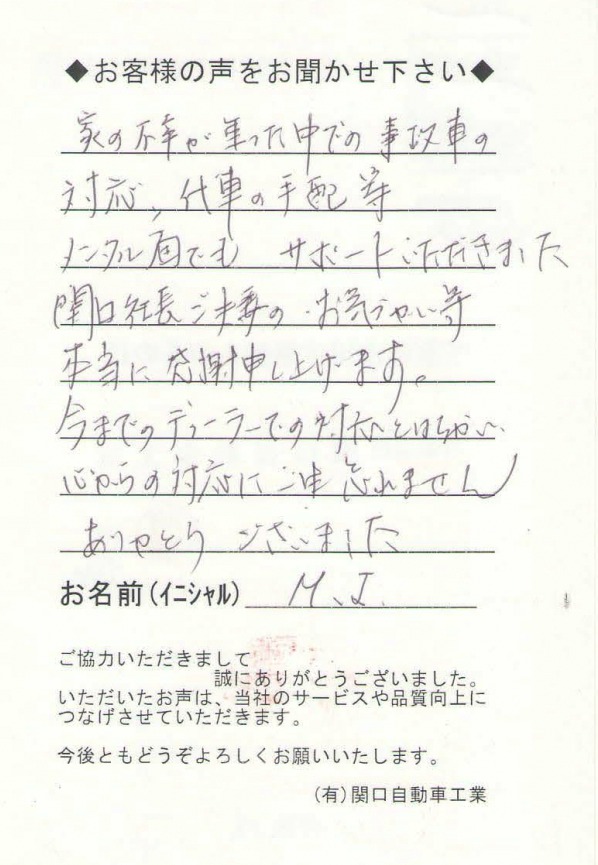 ◆お客様の声をお聞かせ下さい◆
家の不幸が重った中での事故車の
対応、代車の手配等
メンタル面でも サポートいただきました
関口社長ご夫妻の お気づかい等
本当に感謝申し上げます。
今までのディーラーでの対応とはちがい
心からの対応に 忘れません
ありがとう ございました
お名前(イニシャル) M.J.
ご協力いただきまして
誠にありがとうございました。
いただいたお声は、当社のサービスや品質向上に
つなげさせていただきます。
今後ともどうぞよろしくお願いいたします。
(有)関口自動車工業